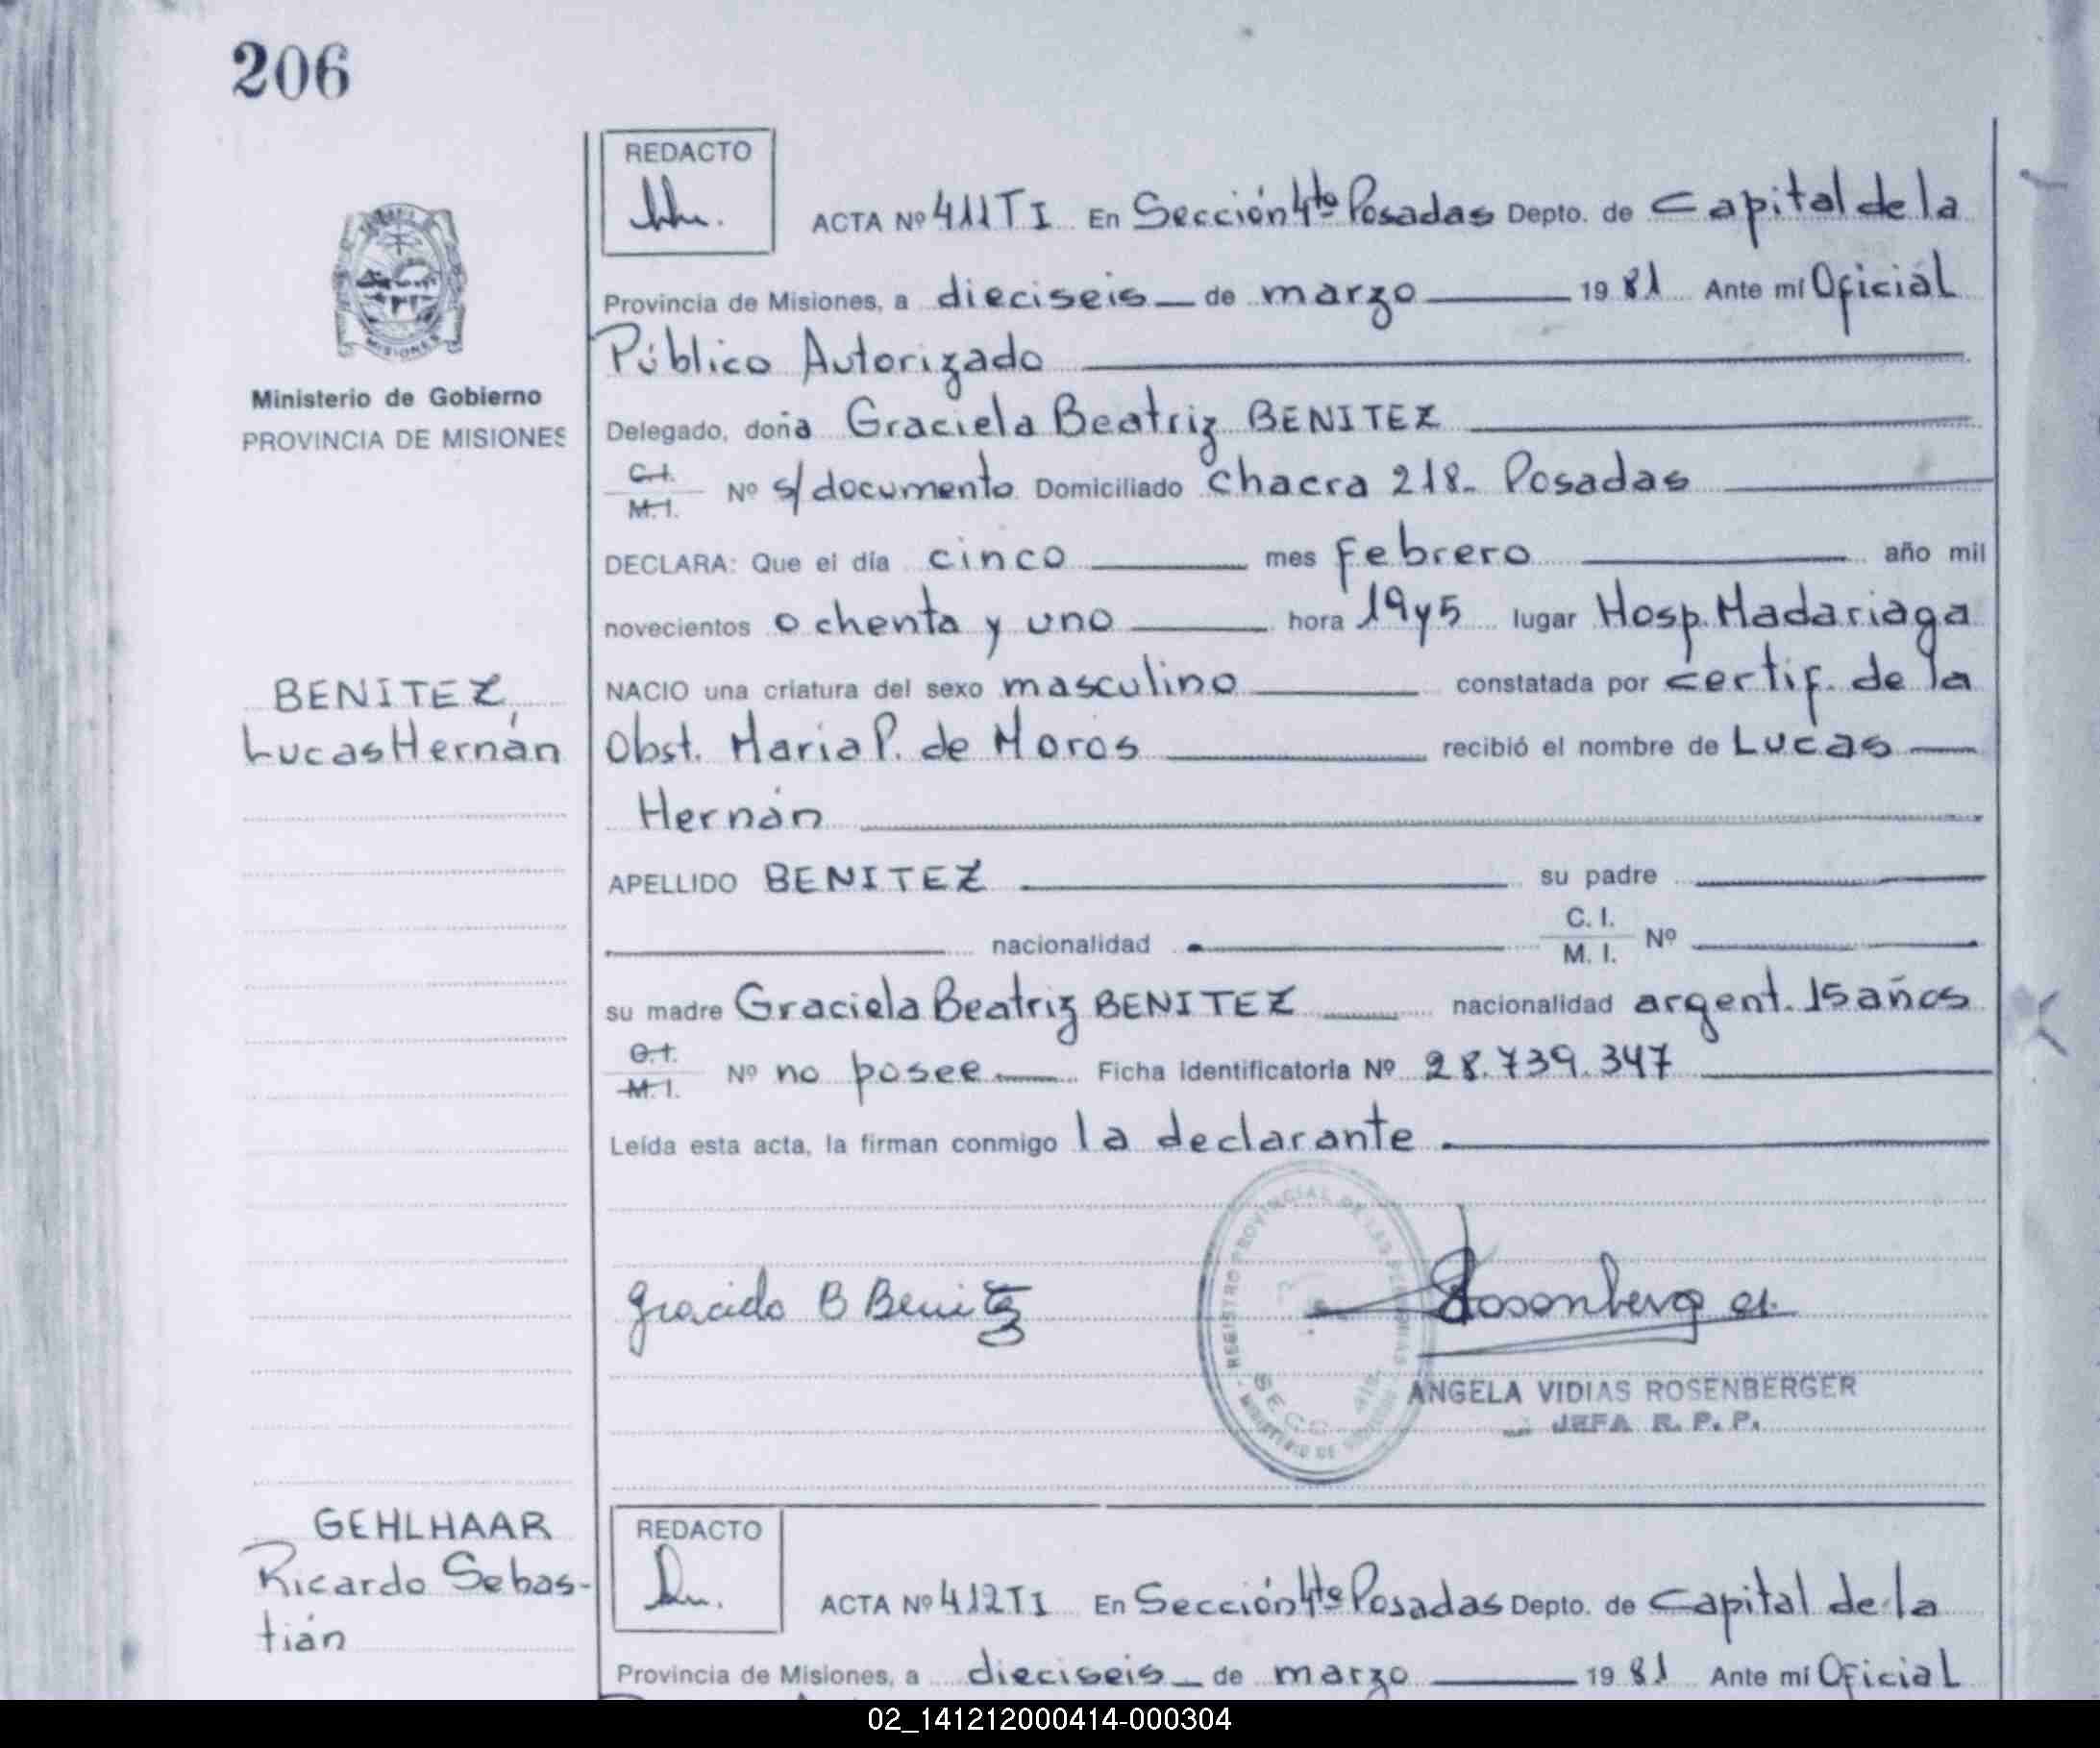 206
REDACTO
ACTA Nº 411TI En Sección 4ta Posadas Depto. de Capital de la
Provincia de Misiones, a dieciseis de marzo 1981 Ante mí Oficial
Público Autorizado
MISIONES
Ministerio de Gobierno
PROVINCIA DE MISIONES
Delegado, doña Graciela Beatriz BENITEZ
C.I.
M.I. Nº s/documento Domiciliado Chacra 218- Posadas
DECLARA: Que el día cinco mes Febrero año mil
novecientos ochenta y uno hora 19y5 lugar Hosp. Madariaga
BENITEZ,
Lucas Hernán
NACIO una criatura del sexo masculino constatada por certif. de la
Obst. Maria P. de Moros recibió el nombre de Lucas
Hernán
APELLIDO BENITEZ su padre
nacionalidad C. I.
M. I. Nº
su madre Graciela Beatriz BENITEZ nacionalidad argent. 15 años
C.I.
M.I. Nº no posee Ficha Identificatoria Nº 28.739.347
Leída esta acta, la firman conmigo la declarante
REGISTRO PROVINCIAL DE LAS PERSONAS
SECC. 4ta
MINISTERIO DE GOBIERNO
Graciela B Benitez
ANGELA VIDIAS ROSENBERGER
JEFA R. P. P.
GEHLHAAR
Ricardo Sebas-
tián
REDACTO
ACTA Nº 412TI En Sección 4ta Posadas Depto. de Capital de la
Provincia de Misiones, a dieciseis de marzo 1981 Ante mí Oficial
02_141212000414-000304